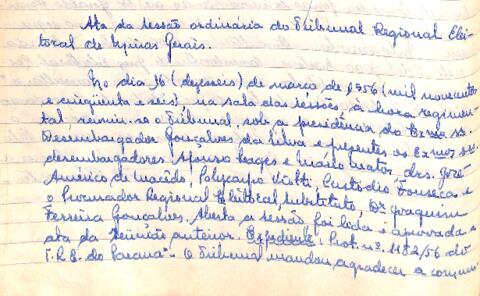 Ata da sessão ordinária do Tribunal Regional Elei-
toral de Minas Gerais.
No dia 16 (dezesseis) de março de 1956 (mil novecentos
e cinquenta e seis), na sala das sessões, à hora regimen-
tal reuniu-se o Tribunal, sob a presidência do Exmo. Sr.
Desembargador Gonçalves da Silva e presentes os Exmos. Srs.
desembargadores Afonso Lages e Mário Matos, drs. José
Américo de Macêdo, Polycarpo Viotti, Custodio Fonseca e
o Procurador Regional Eleitoral, substituto, Dr. Joaquim
Ferreira Gonçalves. Aberta a sessão foi lida e aprovada a
ata da reunião anterior. Expediente: Prot. nº 1182/56 do
T.R.E. do Paraná - O Tribunal mandou agradecer a comuni